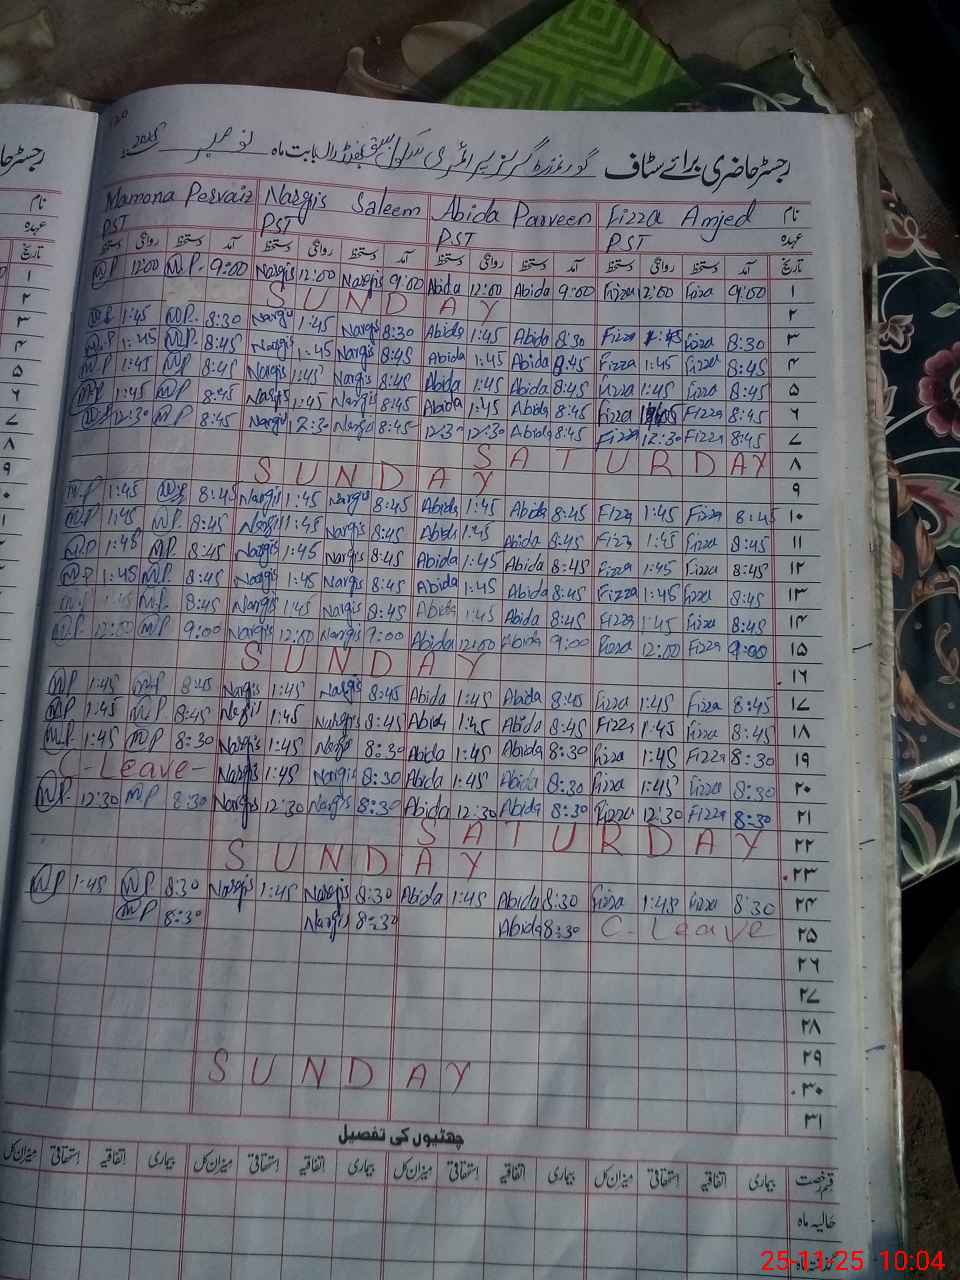 رجسٹر حاضری برائے سٹاف گورنمنٹ گرلز پرائمری سکول بابت ماہ نومبر 2025
نام Fizza Amjed Abida Parveen Nargis Saleem Mamona Pervaiz
عہدہ PST PST PST PST
تاریخ آمد دستخط روانگی دستخط آمد دستخط روانگی دستخط آمد دستخط روانگی دستخط آمد دستخط روانگی دستخط
۱ 9:00 Fizza 12:00 Fizza 9:00 Abida 12:00 Abida 9:00 Nargis 12:00 Nargis 9:00 MP. 12:00 MP
۲ SUNDAY
۳ 8:30 Fizza 1:45 Fizza 8:30 Abida 1:45 Abida 8:30 Nargis 1:45 Nargis 8:30 MP. 1:45 MP
۴ 8:45 Fizza 1:45 Fizza 8:45 Abida 1:45 Abida 8:45 Nargis 1:45 Nargis 8:45 MP. 1:45 MP
۵ 8:45 Fizza 1:45 Fizza 8:45 Abida 1:45 Abida 8:45 Nargis 1:45 Nargis 8:45 MP 1:45 MP
۶ 8:45 Fizza 1:45 Fizza 8:45 Abida 1:45 Abida 8:45 Nargis 1:45 Nargis 8:45 MP 1:45 MP
۷ 8:45 Fizza 12:30 Fizza 8:45 Abida 12:30 12:30 8:45 Nargis 12:30 Nargis 8:45 MP 12:30 MP
۸ SATURDAY
۹ SUNDAY
۱۰ 8:45 Fizza 1:45 Fizza 8:45 Abida 1:45 Abida 8:45 Nargis 1:45 Nargis 8:45 MP 1:45 MP
۱۱ 8:45 Fizza 1:45 Fizza 8:45 Abida 1:45 Abida 8:45 Nargis 1:45 Nargis 8:45 MP. 1:45 MP
۱۲ 8:45 Fizza 1:45 Fizza 8:45 Abida 1:45 Abida 8:45 Nargis 1:45 Nargis 8:45 MP. 1:45 MP
۱۳ 8:45 Fizza 1:45 Fizza 8:45 Abida 1:45 Abida 8:45 Nargis 1:45 Nargis 8:45 MP. 1:45 MP
۱۴ 8:45 Fizza 1:45 Fizza 8:45 Abida 1:45 Abida 8:45 Nargis 1:45 Nargis 8:45 MP. 1:45 MP
۱۵ 9:00 Fizza 12:00 Fizza 9:00 Abida 12:00 Abida 9:00 Nargis 12:00 Nargis 9:00 MP. 12:00 MP
۱۶ SUNDAY
۱۷ 8:45 Fizza 1:45 Fizza 8:45 Abida 1:45 Abida 8:45 Nargis 1:45 Nargis 8:45 MP 1:45 MP
۱۸ 8:45 Fizza 1:45 Fizza 8:45 Abida 1:45 Abida 8:45 Nargis 1:45 Nargis 8:45 MP. 1:45 MP
۱۹ 8:30 Fizza 1:45 Fizza 8:30 Abida 1:45 Abida 8:30 Nargis 1:45 Nargis 8:30 MP 1:45 MP.
۲۰ 8:30 Fizza 1:45 Fizza 8:30 Abida 1:45 Abida 8:30 Nargis 1:45 Nargis C-Leave-
۲۱ 8:30 Fizza 12:30 Fizza 8:30 Abida 12:30 Abida 8:30 Nargis 12:30 Nargis 8:30 MP 12:30 MP.
۲۲ SATURDAY
۲۳ SUNDAY
۲۴ 8:30 Fizza 1:45 Fizza 8:30 Abida 1:45 Abida 8:30 Nargis 1:45 Nargis 8:30 MP. 1:45 MP
۲۵ C-Leave 8:30 Abida 8:30 Nargis 8:30 MP
۲۶
۲۷
۲۸
۲۹
۳۰ SUNDAY
۳۱
چھٹیوں کی تفصیل
قسم رخصت بیماری اتفاقیہ استحقاقی میزان کل بیماری اتفاقیہ استحقاقی میزان کل بیماری اتفاقیہ استحقاقی میزان کل بیماری اتفاقیہ استحقاقی میزان کل
حالیہ ماہ
25-11-25 10:04